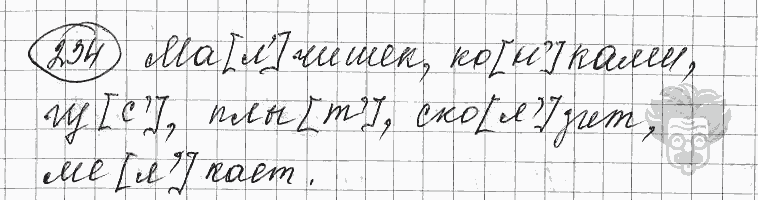 234 Ма[л']чишек, ко[н']ками,
гу[с'], плы[т'], ско[л']зит,
ме[л']кает.